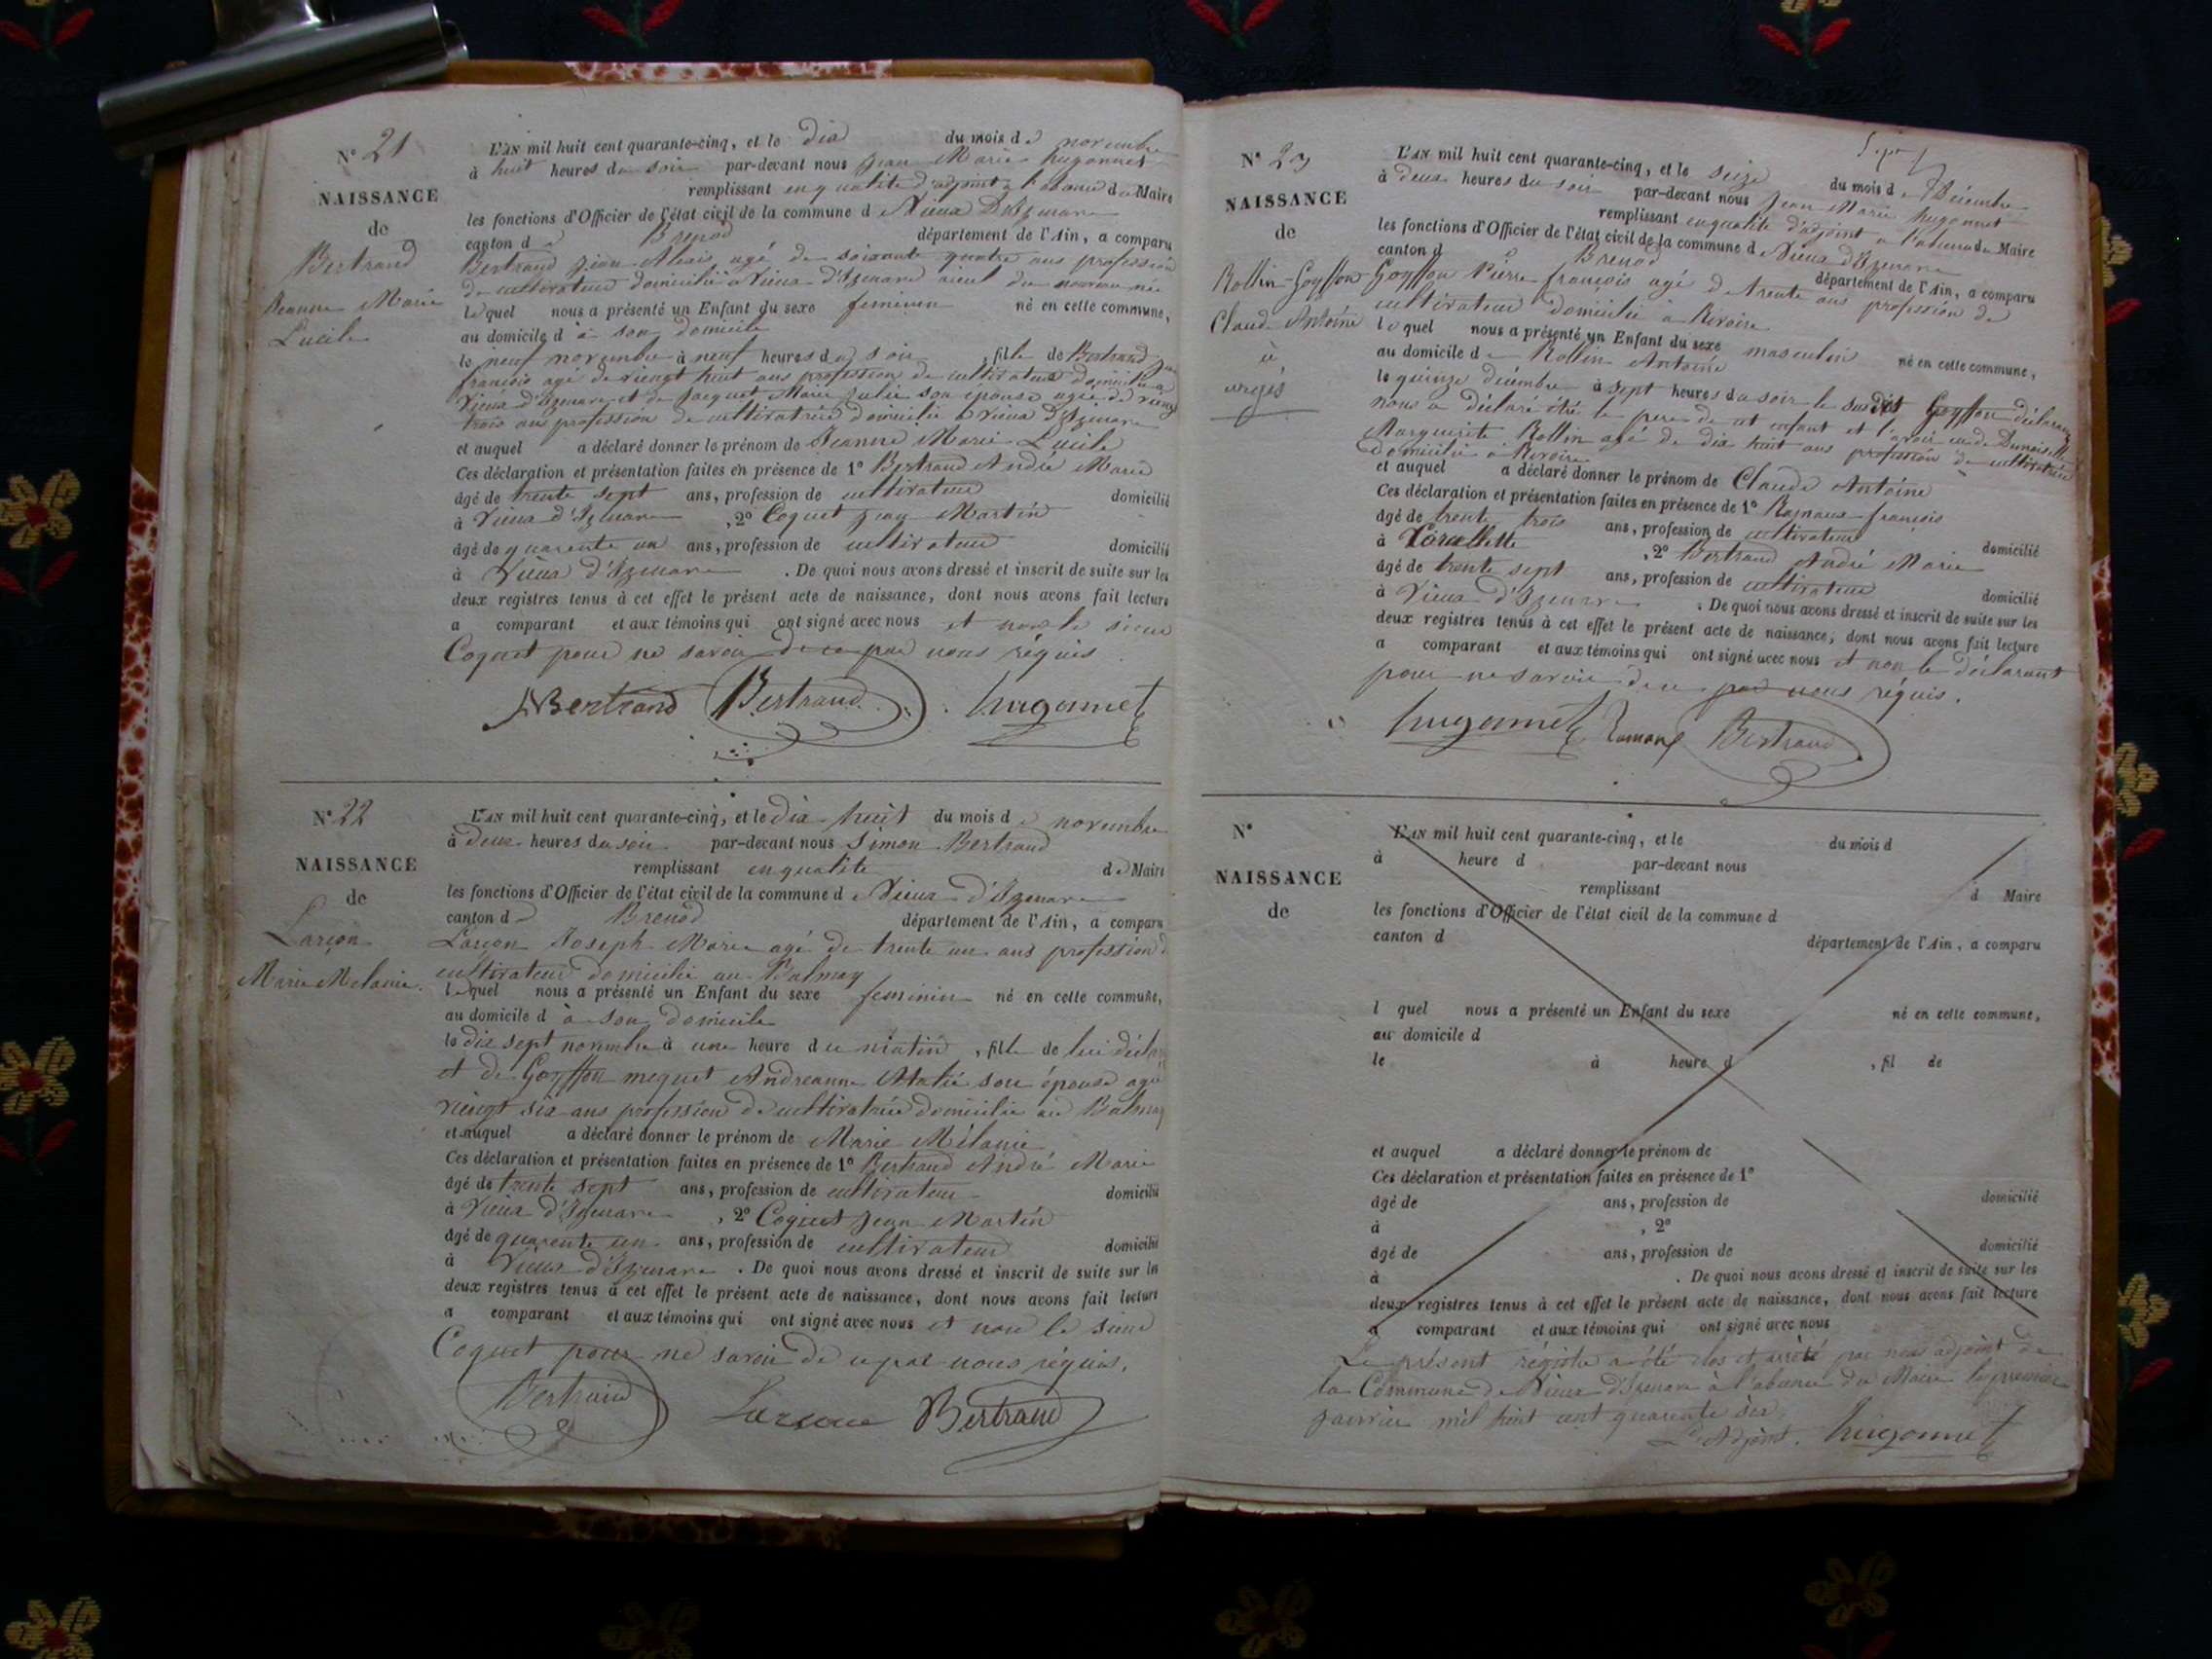 N° 21
NAISSANCE
de
Bertrand
Jeanne Marie
Lucile
L'AN mil huit cent quarante-cinq, et le dix du mois de novembre
à huit heures du soir par-devant nous Jean Marie hugonnet
remplissant en qualité d'adjoint à l'absence du Maire
les fonctions d'Officier de l'état civil de la commune d Vieux D'Izenave
canton d Brenod département de l'Ain, a comparu
Bertrand Jean Alexis agé de soixante quatre ans profession
de cultivateur domicilié à Vieux d'Izenave aieul du nouveau né
lequel nous a présenté un Enfant du sexe feminin né en cette commune,
au domicile d à son domicile
le neuf novembre à neuf heures du soir, fille de Bertrand
françois agé de viengt huit ans profession de cultivateur domicilié a
Vieux d'Izenave et de Jacquet Marie Julie son épouse agée de viengt
trois ans profession de cultivatrice domicilié à Vieux d'Izenave
et auquel a déclaré donner le prénom de Jeanne Marie Lucile
Ces déclaration et présentation faites en présence de 1° Bertrand André Marie
âgé de trente sept ans, profession de cultivateur domicilié
à Vieux d'Izenave, 2° Coquet Jean Martin
âgé de quarente un ans, profession de cultivateur domicilié
à Vieux d'Izenave. De quoi nous avons dressé et inscrit de suite sur les
deux registres tenus à cet effet le présent acte de naissance, dont nous avons fait lecture
a comparant et aux témoins qui ont signé avec nous et non le sieur
Coquet pour ne savoir de ce par nous réquis.
Bertrand Bertrand hugonnet
N° 22
NAISSANCE
de
Larçon
Marie Melanie.
L'AN mil huit cent quarante-cinq, et le dix huit du mois de novembre
à deux heures du soir par-devant nous Simon Bertrand
remplissant en qualité de Maire
les fonctions d'Officier de l'état civil de la commune d Vieux d'Izenave
canton d Brenod département de l'Ain, a comparu
Larçon Joseph Marie agé de trente un ans profession d
cultivateur domicilié au Balmay
lequel nous a présenté un Enfant du sexe feminin né en cette commune,
au domicile d à son domicile
le dix sept novembre à une heure du matin, fille de lui
et de Goyffon mequet Andreanne son épouse agé
viengt six ans profession de cultivatrice domicilié au Balmay
et auquel a déclaré donner le prénom de Marie Mélanie
Ces déclaration et présentation faites en présence de 1° Bertrand André Marie
âgé de trente sept ans, profession de cultivateur domicilié
à Vieux d'Izenave, 2° Coquet Jean Martin
âgé de quarente un ans, profession de cultivateur domicilié
à Vieux d'Izenave. De quoi nous avons dressé et inscrit de suite sur les
deux registres tenus à cet effet le présent acte de naissance, dont nous avons fait lecture
a comparant et aux témoins qui ont signé avec nous et non le sieur
Coquet pour ne savoir de ce par nous réquis.
Bertrand Larçon Bertrand
Sept
N° 23
NAISSANCE
de
Rollin-Goyffon
Claude Antoine
L'AN mil huit cent quarante-cinq, et le seize du mois de Décembre
à deux heures du soir par-devant nous Jean Marie hugonnet
remplissant en qualité d'adjoint à l'absence du Maire
les fonctions d'Officier de l'état civil de la commune d Vieux d'Izenave
canton d Brenod département de l'Ain, a comparu
Goyffon Pierre françois agé de trente ans profession de
cultivateur domicilié à Rivoire
lequel nous a présenté un Enfant du sexe masculin né en cette commune,
au domicile de Rollin Antoine
le quinze décembre à sept heures du soir le susdit Goyffon déclarant
nous a déclaré être le pere de cet enfant et l'avoir eu de Demoiselle
Marguerite Rollin agé de dix huit ans profession de cultivatrice
domicilié à Rivoire
et auquel a déclaré donner le prénom de Claude Antoine
Ces déclaration et présentation faites en présence de 1° françois
âgé de trente trois ans, profession de cultivateur domicilié
à, 2° Bertrand André Marie
âgé de trente sept ans, profession de cultivateur domicilié
à Vieux d'Izenave. De quoi nous avons dressé et inscrit de suite sur les
deux registres tenus à cet effet le présent acte de naissance, dont nous avons fait lecture
a comparant et aux témoins qui ont signé avec nous et non le déclarant
pour ne savoir de ce par nous réquis.
hugonnet Bertrand
N°
NAISSANCE
de
L'AN mil huit cent quarante-cinq, et le du mois d
à heure d par-devant nous
remplissant d Maire
les fonctions d'Officier de l'état civil de la commune d
canton d département de l'Ain, a comparu
l quel nous a présenté un Enfant du sexe né en cette commune,
au domicile d
le à heure d, fil de
et auquel a déclaré donner le prénom de
Ces déclaration et présentation faites en présence de 1°
âgé de ans, profession de domicilié
à, 2°
âgé de ans, profession de domicilié
à. De quoi nous avons dressé et inscrit de suite sur les
deux registres tenus à cet effet le présent acte de naissance, dont nous avons fait lecture
a comparant et aux témoins qui ont signé avec nous
Le présent régistre a été clos et arrêté par nous adjoint de
la Commune de Vieux d'Izenave à l'absence du Maire le premier
janvier mil huit cent quarente six.
L'Adjoint. hugonnet